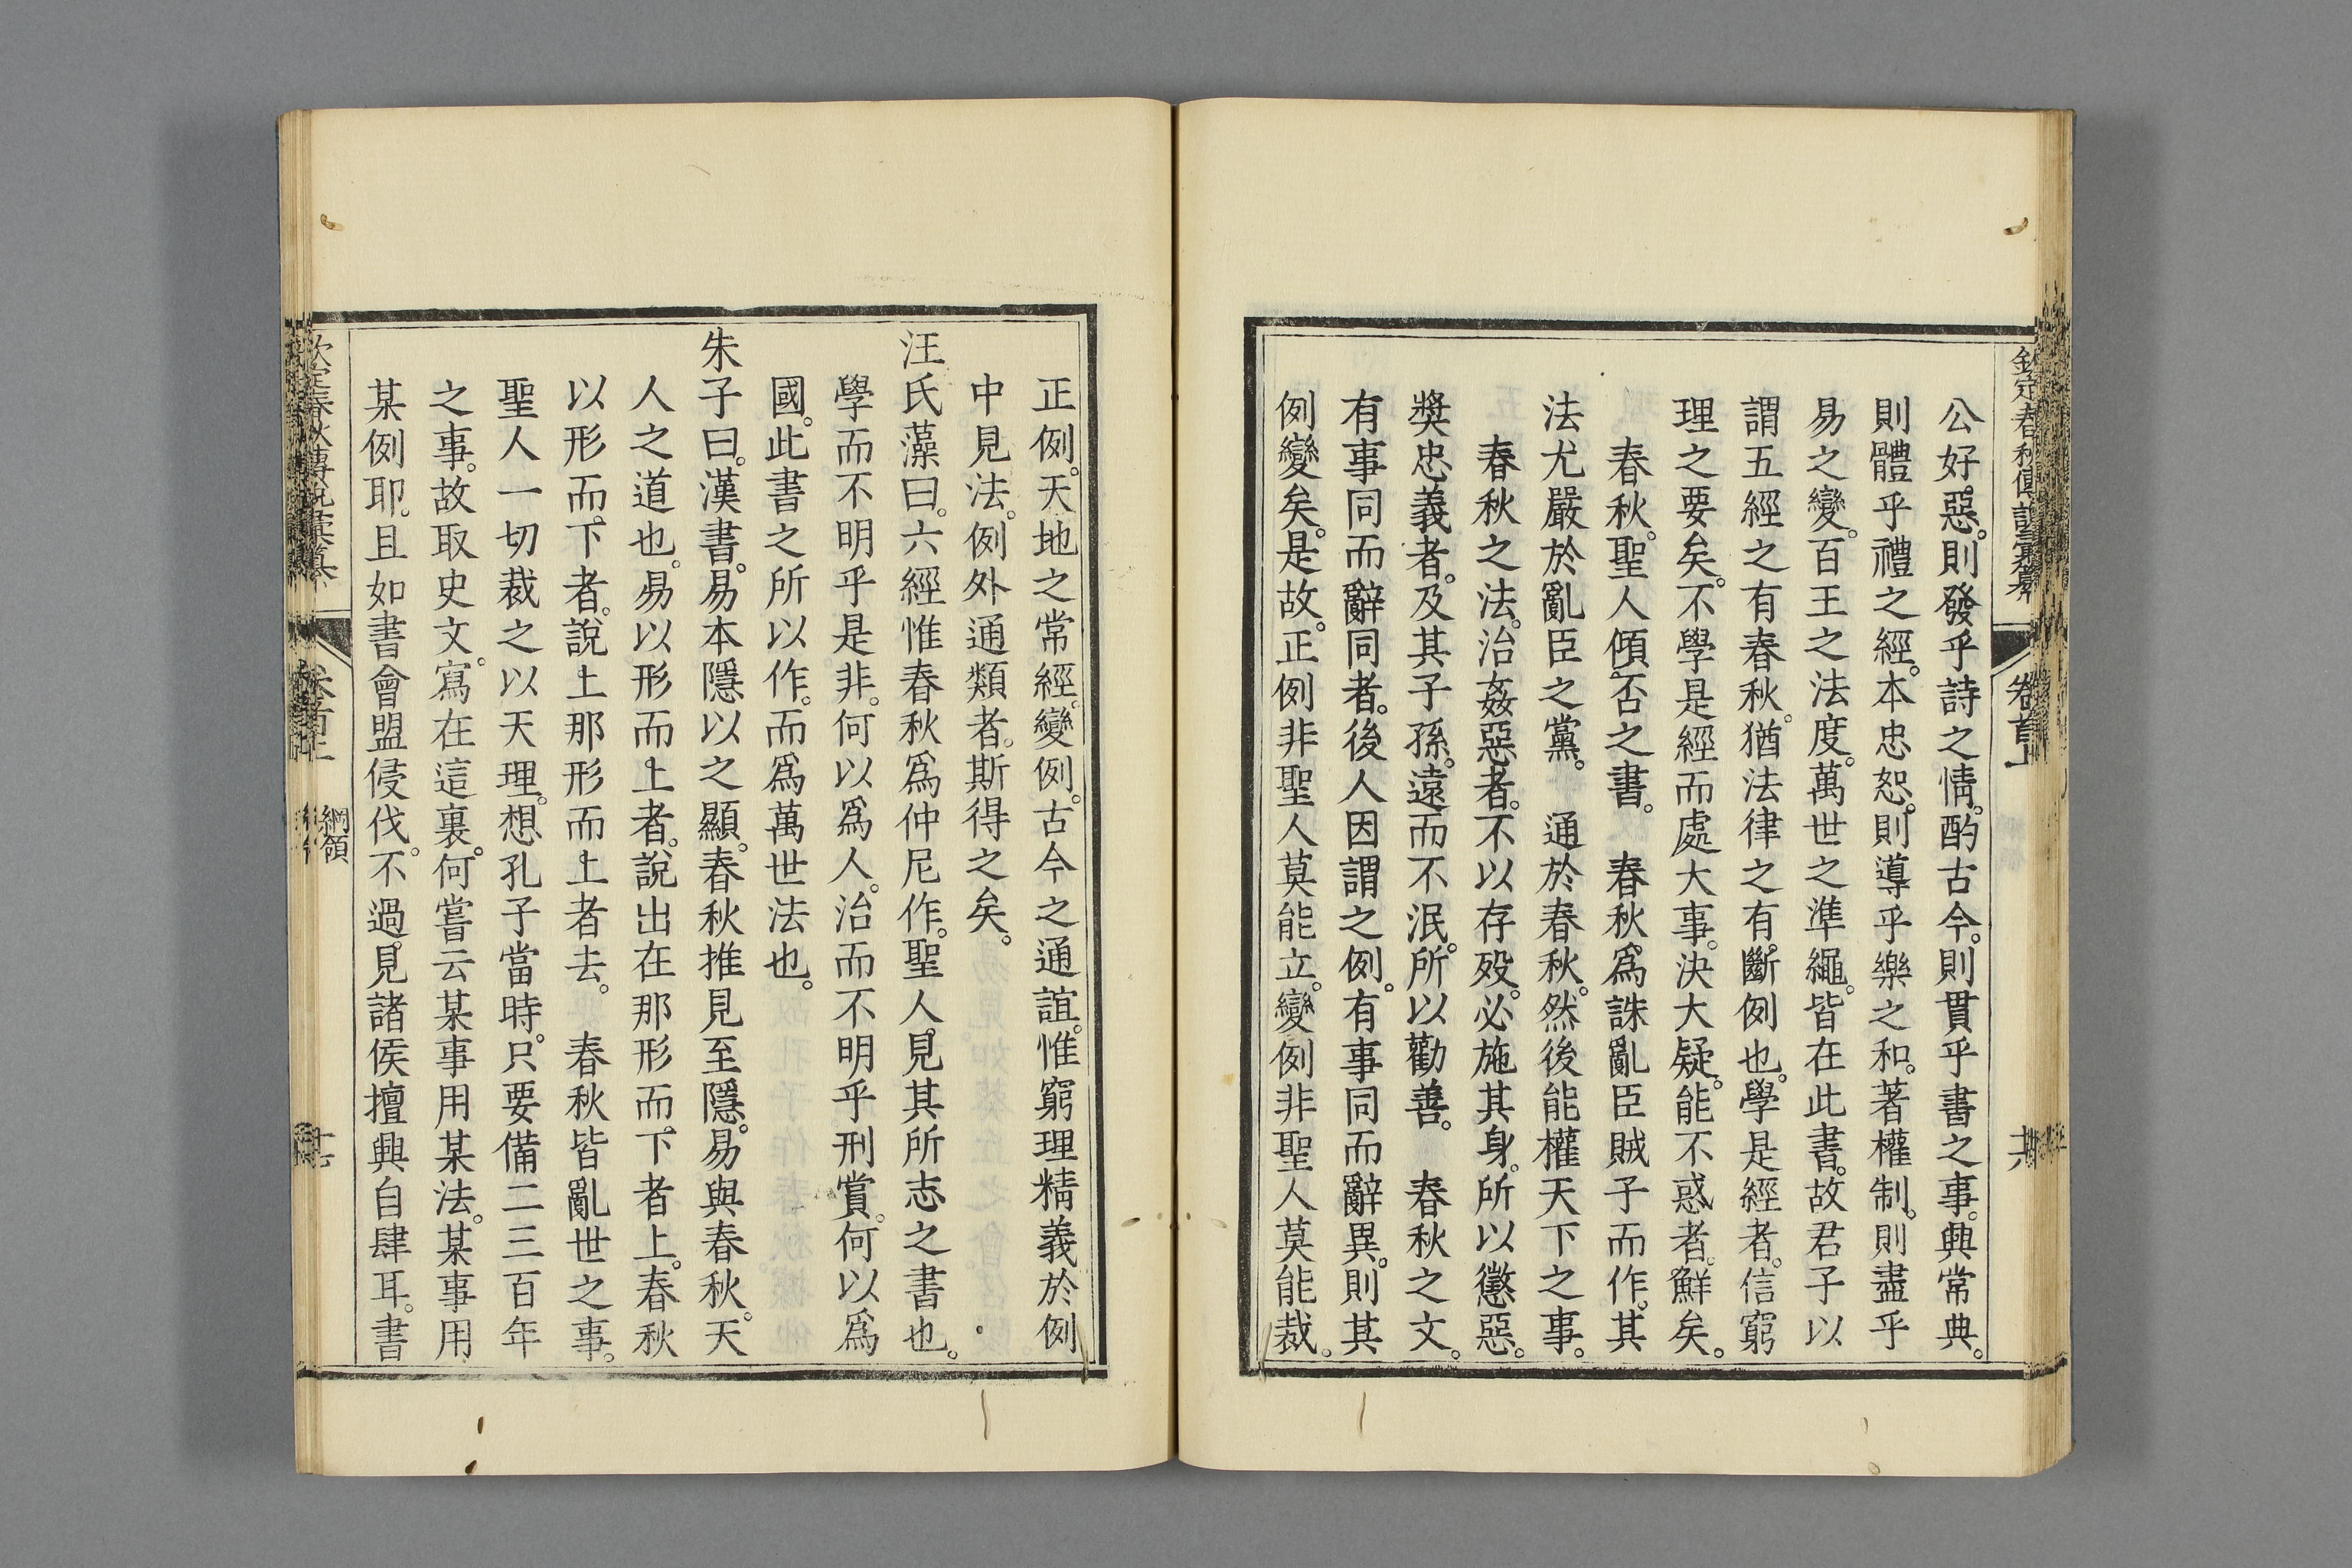 欽定春秋傳說彙纂 卷首上
公好惡。則發乎詩之情。酌古今。則貫乎書之事。興常典。
則體乎禮之經。本忠恕。則導乎樂之和。著權制。則盡乎
易之變。百王之法度。萬世之準繩。皆在此書。故君子以
謂五經之有春秋。猶法律之有斷例也。學是經者。信窮
理之要矣。不學是經而處大事。決大疑。能不惑者。鮮矣。
春秋。聖人傾否之書。 春秋爲誅亂臣賊子而作。其
法尤嚴於亂臣之黨。 通於春秋。然後能權天下之事。
春秋之法。治姦惡者。不以存歿。必施其身。所以懲惡。
獎忠義者。及其子孫。遠而不泯。所以勸善。 春秋之文。
有事同而辭同者。後人因謂之例。有事同而辭異。則其
例變矣。是故。正例非聖人莫能立。變例非聖人莫能裁。
正例。天地之常經。變例。古今之通誼。惟窮理精義於例
中見法。例外通類者。斯得之矣。
汪氏藻曰。六經惟春秋爲仲尼作。聖人見其所志之書也。
學而不明乎是非。何以爲人。治而不明乎刑賞。何以爲
國。此書之所以作。而爲萬世法也。
朱子曰。漢書。易本隱以之顯。春秋推見至隱。易與春秋。天
人之道也。易以形而上者。說出在那形而下者上。春秋
以形而下者。說上那形而上者去。 春秋皆亂世之事。
聖人一切裁之以天理。想孔子當時。只要備二三百年
之事。故取史文。寫在這裏。何嘗云某事用某法。某事用
某例耶。且如書會盟侵伐。不過見諸侯擅興自肆耳。書
欽定春秋傳說彙纂 卷首上 綱領